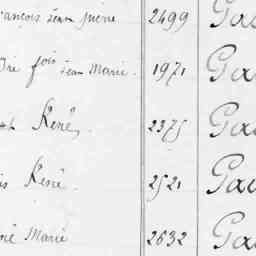 rançois Jean pierre 2499 Gau
fois Jean Marie. 1971 Gau
René, 2375 Gau
is René. 2521 Gau
né Marie 2632 Gau